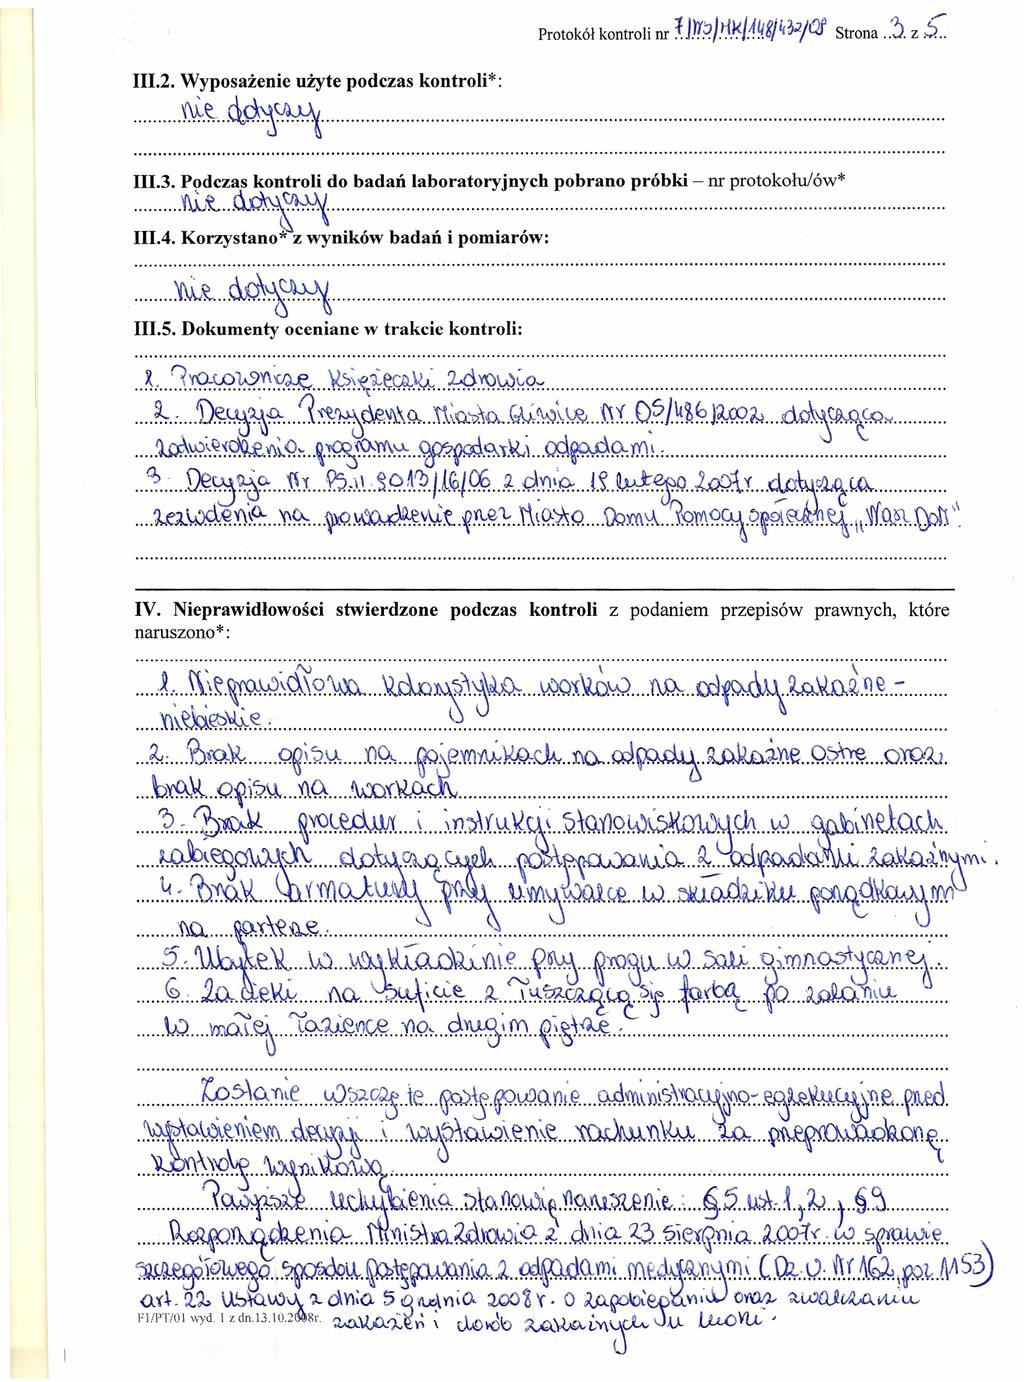 Protokół kontroli nr 7/NS/HK/148/432/08 Strona ..3. z .5..
III.2. Wyposażenie użyte podczas kontroli*:
nie dotyczy
III.3. Podczas kontroli do badań laboratoryjnych pobrano próbki – nr protokołu/ów*
nie dotyczy
III.4. Korzystano* z wyników badań i pomiarów:
nie dotyczy
III.5. Dokumenty oceniane w trakcie kontroli:
1. Pracownicze Książeczki Zdrowia
2. Decyzja Prezydenta Miasta Gliwice Nr OS/486/2002 dotycząca
zatwierdzenia programu gospodarki odpadami.
3. Decyzja Nr PS.II.9013/16/06 z dnia 19 lutego 2007r dotycząca
zezwolenia na prowadzenie przez Miasto Domu Pomocy Społecznej „Nasz Dom"
IV. Nieprawidłowości stwierdzone podczas kontroli z podaniem przepisów prawnych, które
naruszono*:
1. Nieprawidłowa kolorystyka worków na odpady zakaźne -
niebieskie.
2. Brak opisu na pojemnikach na odpady zakaźne ostre oraz
brak opisu na workach
3. Brak procedur i instrukcji stanowiskowych w gabinetach
zabiegowych dotyczących postępowania z odpadami zakaźnymi.
4. Brak armatury przy umywalce w składziku porządkowym
na parterze.
5. Ubytek w wykładzinie przy progu w sali gimnastycznej.
6. Zacieki na suficie z łuszczącą się farbą po zalaniu
w małej łazience na drugim piętrze.
Zostanie wszczęte postępowanie administracyjno-egzekucyjne przed
wystawieniem decyzji i wystawienie rachunku za przeprowadzoną
kontrolę wynikową.
Powyższe uchybienia stanowią naruszenie: §5 ust. 1, 2, §9
Rozporządzenia Ministra Zdrowia z dnia 23 sierpnia 2007r. w sprawie
szczegółowego sposobu postępowania z odpadami medycznymi (Dz. U. Nr 162, poz. 1153)
art. 22 Ustawy z dnia 5 grudnia 2008r. o zapobieganiu oraz zwalczaniu
F1/PT/01 wyd. 1 z dn.13.10.2008r. zakażeń i chorób zakaźnych u ludzi.